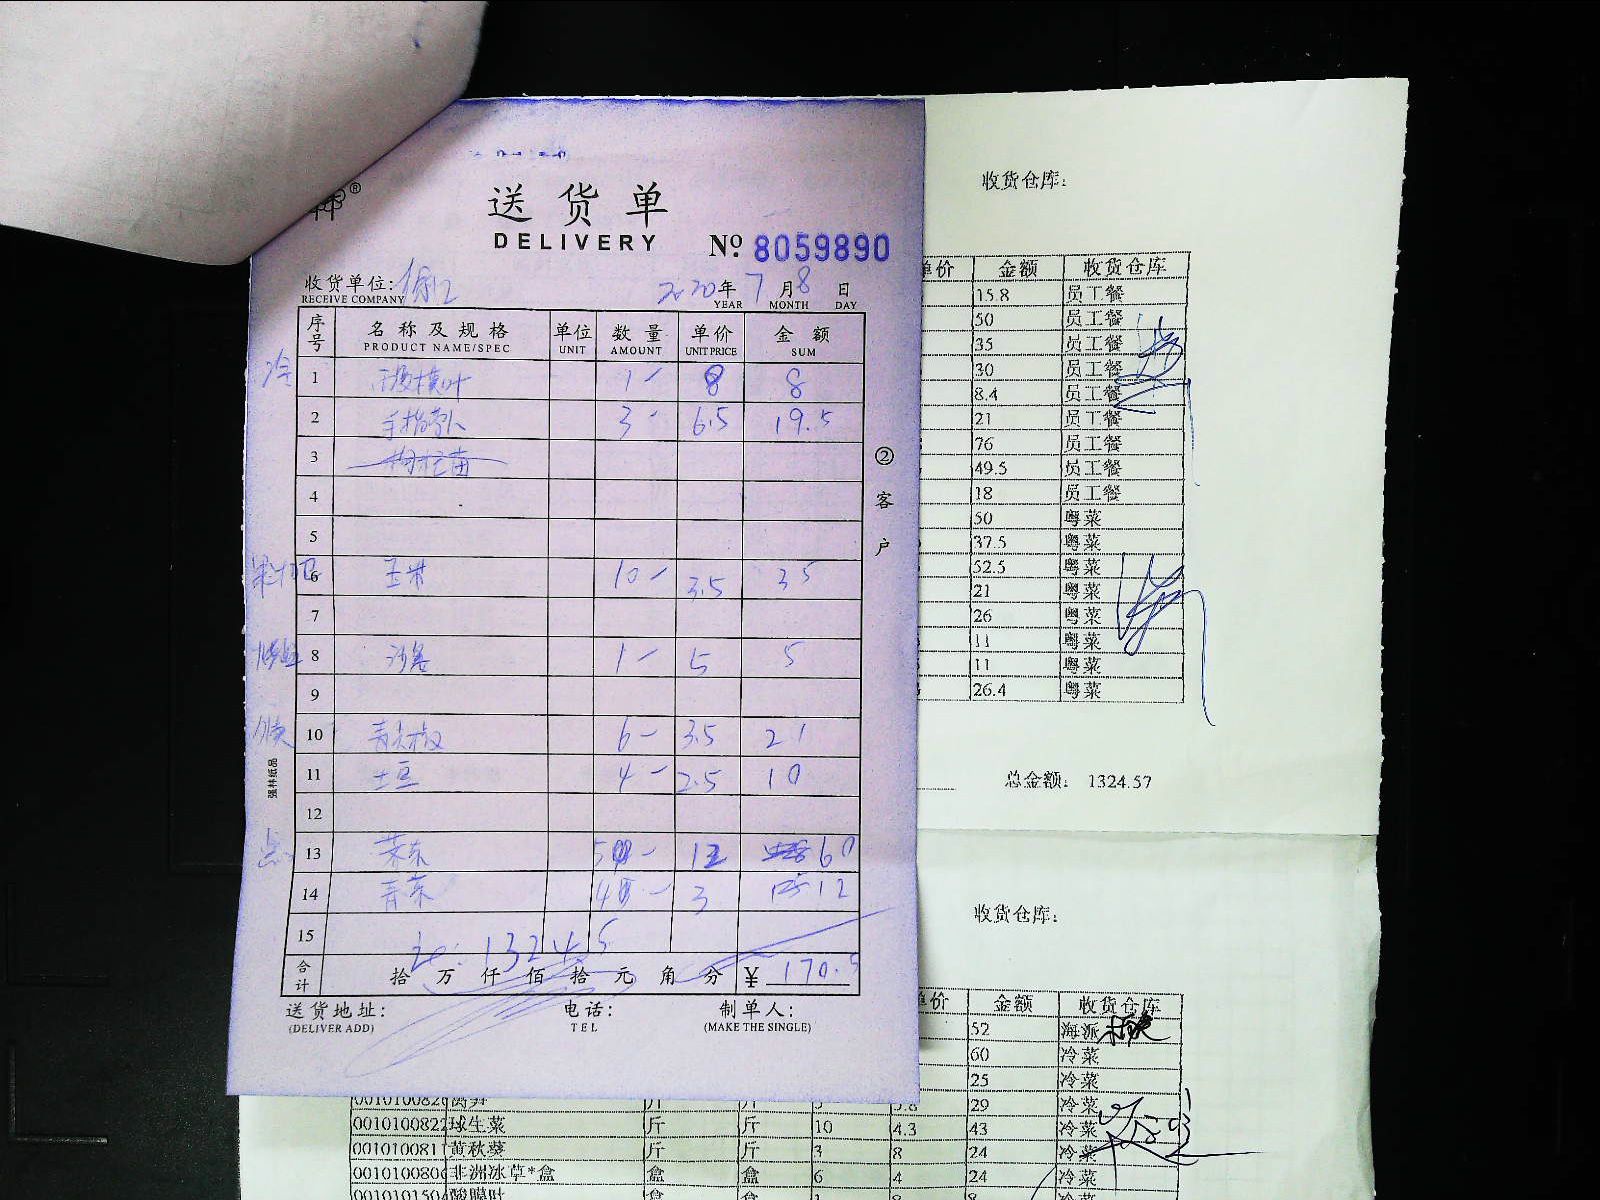 送货单
DELIVERY
№ 8059890
收货单位:
RECEIVE COMPANY
2020年 7月 8日
YEAR MONTH DAY
序号 名称及规格 单位 数量 单价 金额
PRODUCT NAME/SPEC UNIT AMOUNT UNIT PRICE SUM
冷 1 1- 8 8
2 3- 6.5 19.5
3
4
5
6 玉米 10- 3.5 35
7
8 沙葛 1- 5 5
9
10 青尖椒 6- 3.5 21
11 土豆 4- 2.5 10
12
点 13 12 60
14 青菜 3 12
15
1324.5
合计 拾 万 仟 佰 拾 元 角 分 ¥ 170.5
送货地址: 电话: 制单人:
(DELIVER ADD) TEL (MAKE THE SINGLE)
②客户
强林纸品
收货仓库:
单价 金额 收货仓库
15.8 员工餐
50 员工餐
35 员工餐
30 员工餐
8.4 员工餐
21 员工餐
76 员工餐
49.5 员工餐
18 员工餐
50 粤菜
37.5 粤菜
52.5 粤菜
21 粤菜
26 粤菜
11 粤菜
11 粤菜
26.4 粤菜
总金额: 1324.57
收货仓库:
单价 金额 收货仓库
52 海派
60 冷菜
25 冷菜
斤 斤 5.8 29 冷菜
球生菜 斤 斤 10 4.3 43 冷菜
黄秋葵 斤 斤 3 8 24 冷菜
非洲冰草*盒 盒 盒 6 4 24 冷菜
酸膜叶 盒 盒 1 8 8 冷菜